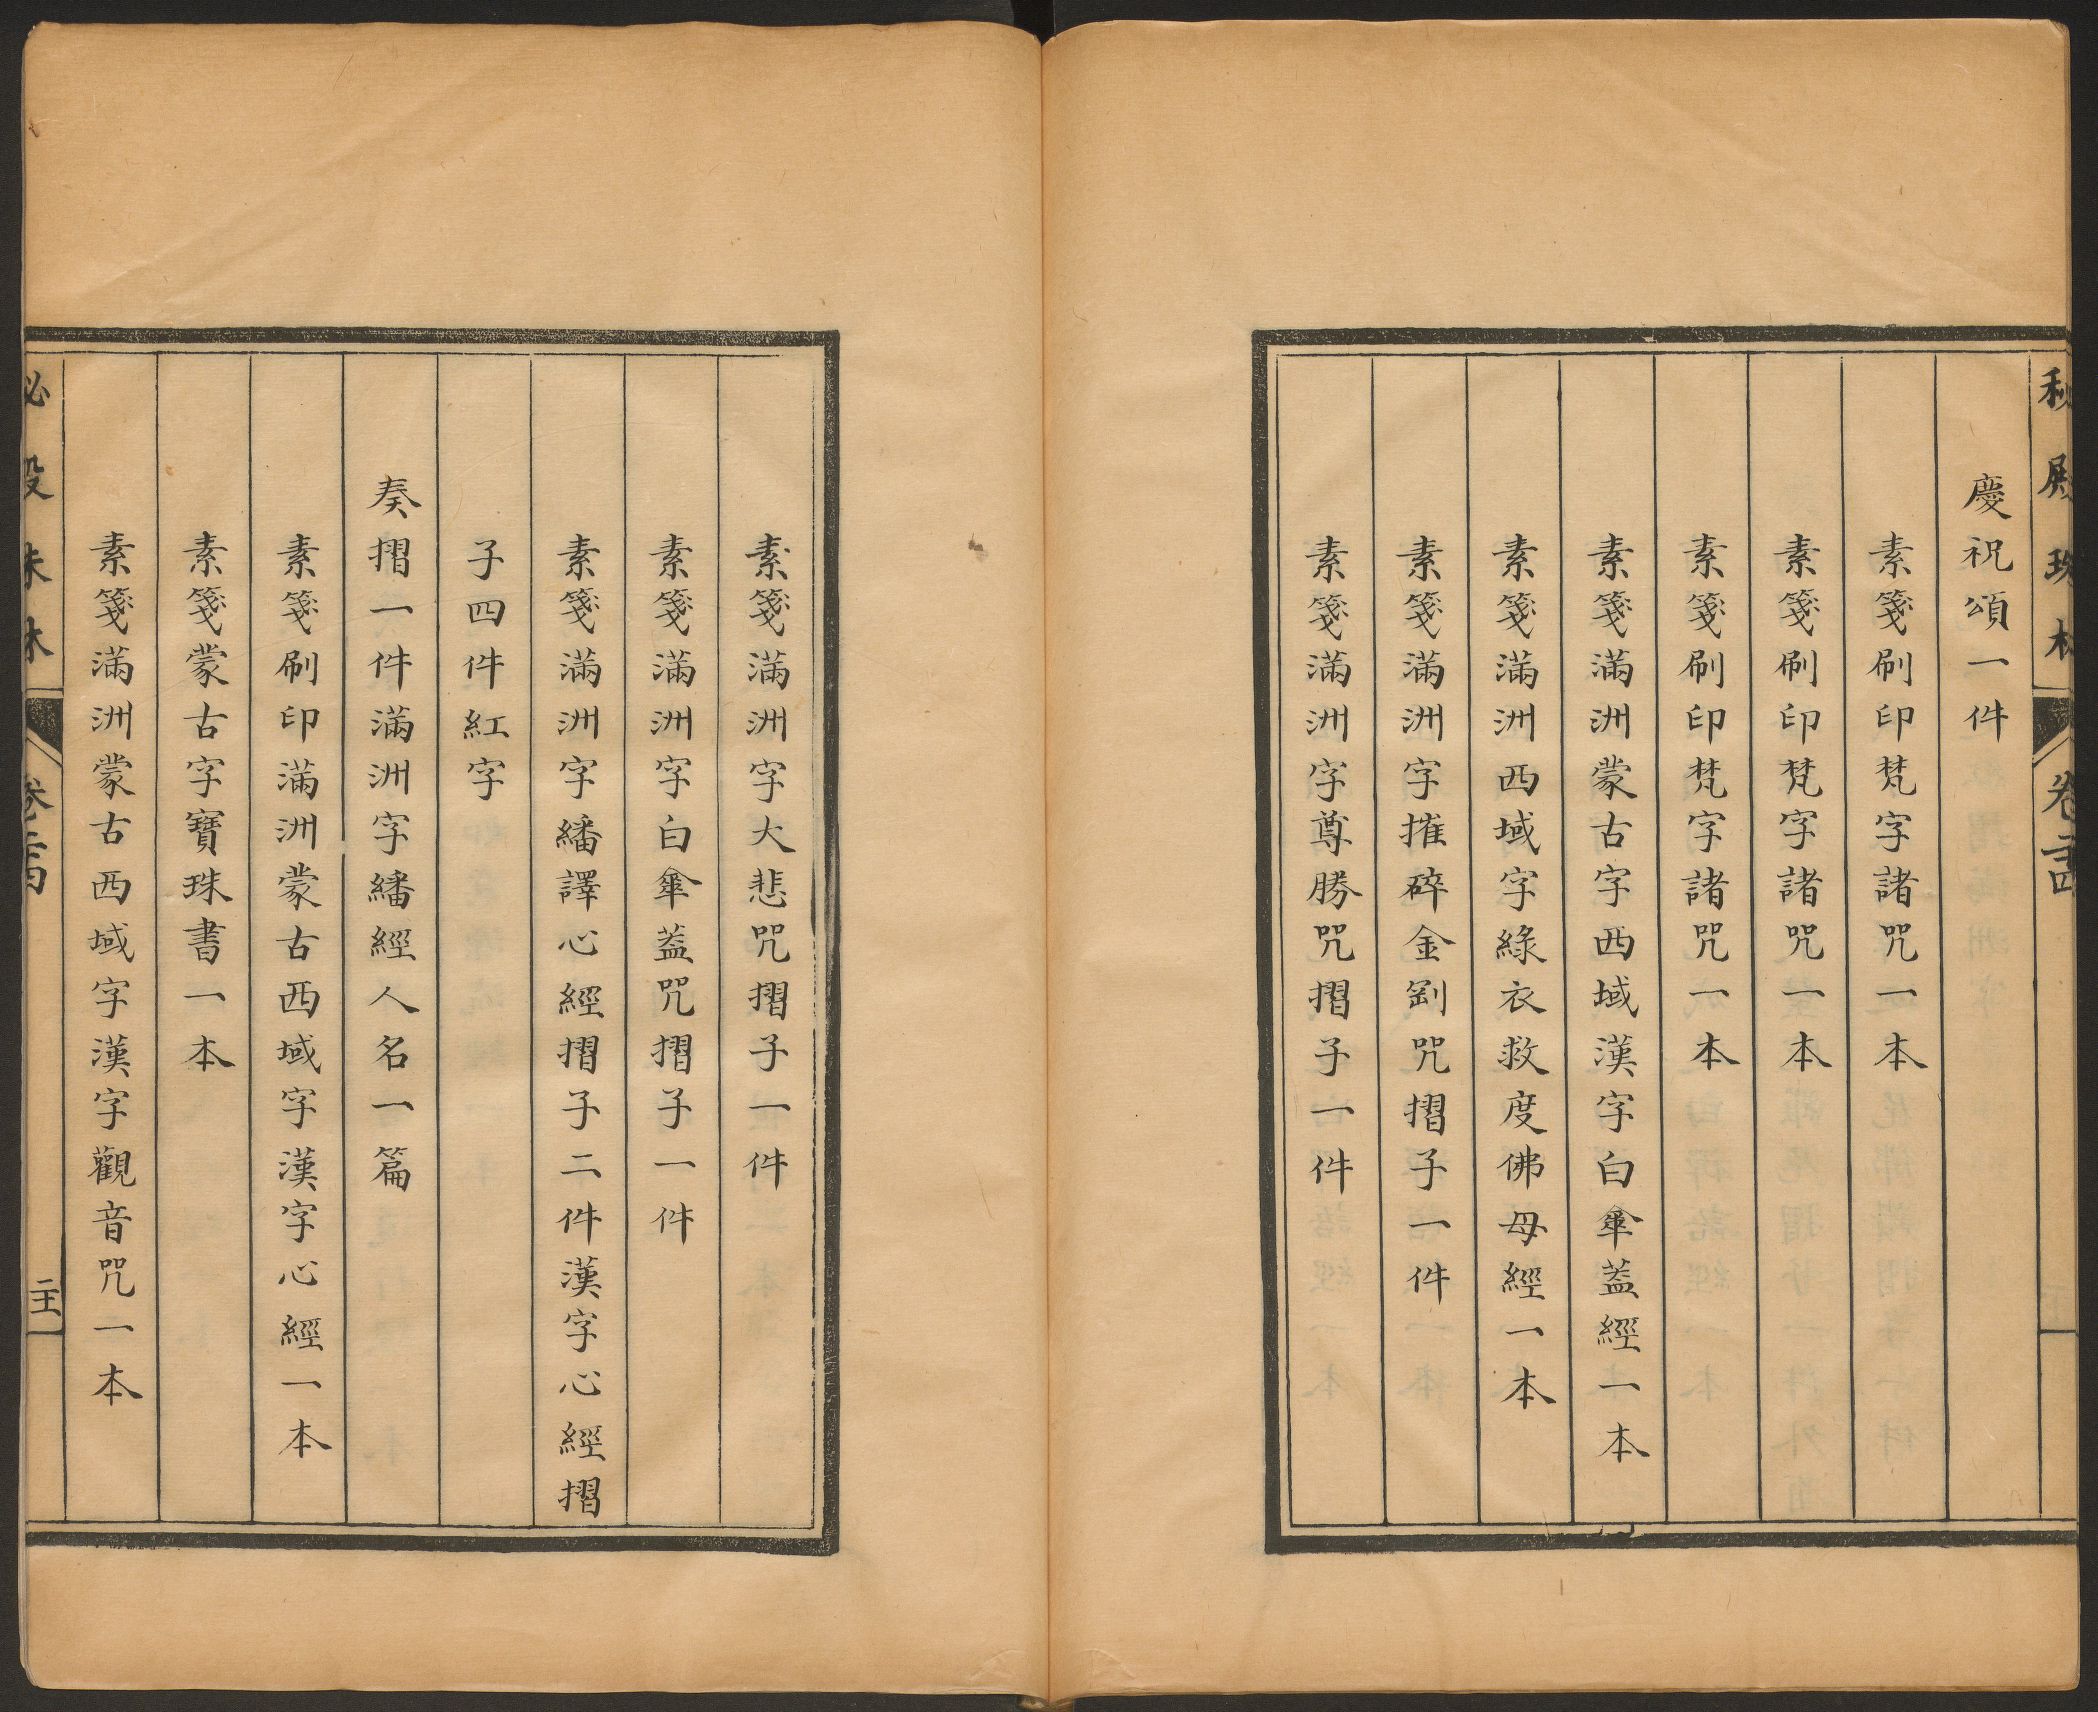 秘殿珠林
卷二十四
慶祝頌一件
素箋刷印梵字諸咒一本
素箋刷印梵字諸咒一本
素箋刷印梵字諸咒一本
素箋滿洲蒙古字西域漢字白傘蓋經一本
素箋滿洲西域字綠衣救度佛母經一本
素箋滿洲字摧碎金剛咒摺子一件
素箋滿洲字尊勝咒摺子一件
素箋滿洲字大悲咒摺子一件
素箋滿洲字白傘蓋咒摺子一件
素箋滿洲字繙譯心經摺子二件漢字心經摺
子四件紅字
奏摺一件滿洲字繙經人名一篇
素箋刷印滿洲蒙古西域字漢字心經一本
素箋蒙古字寶珠書一本
素箋滿洲蒙古西域字漢字觀音咒一本
秘殿珠林
卷二十四